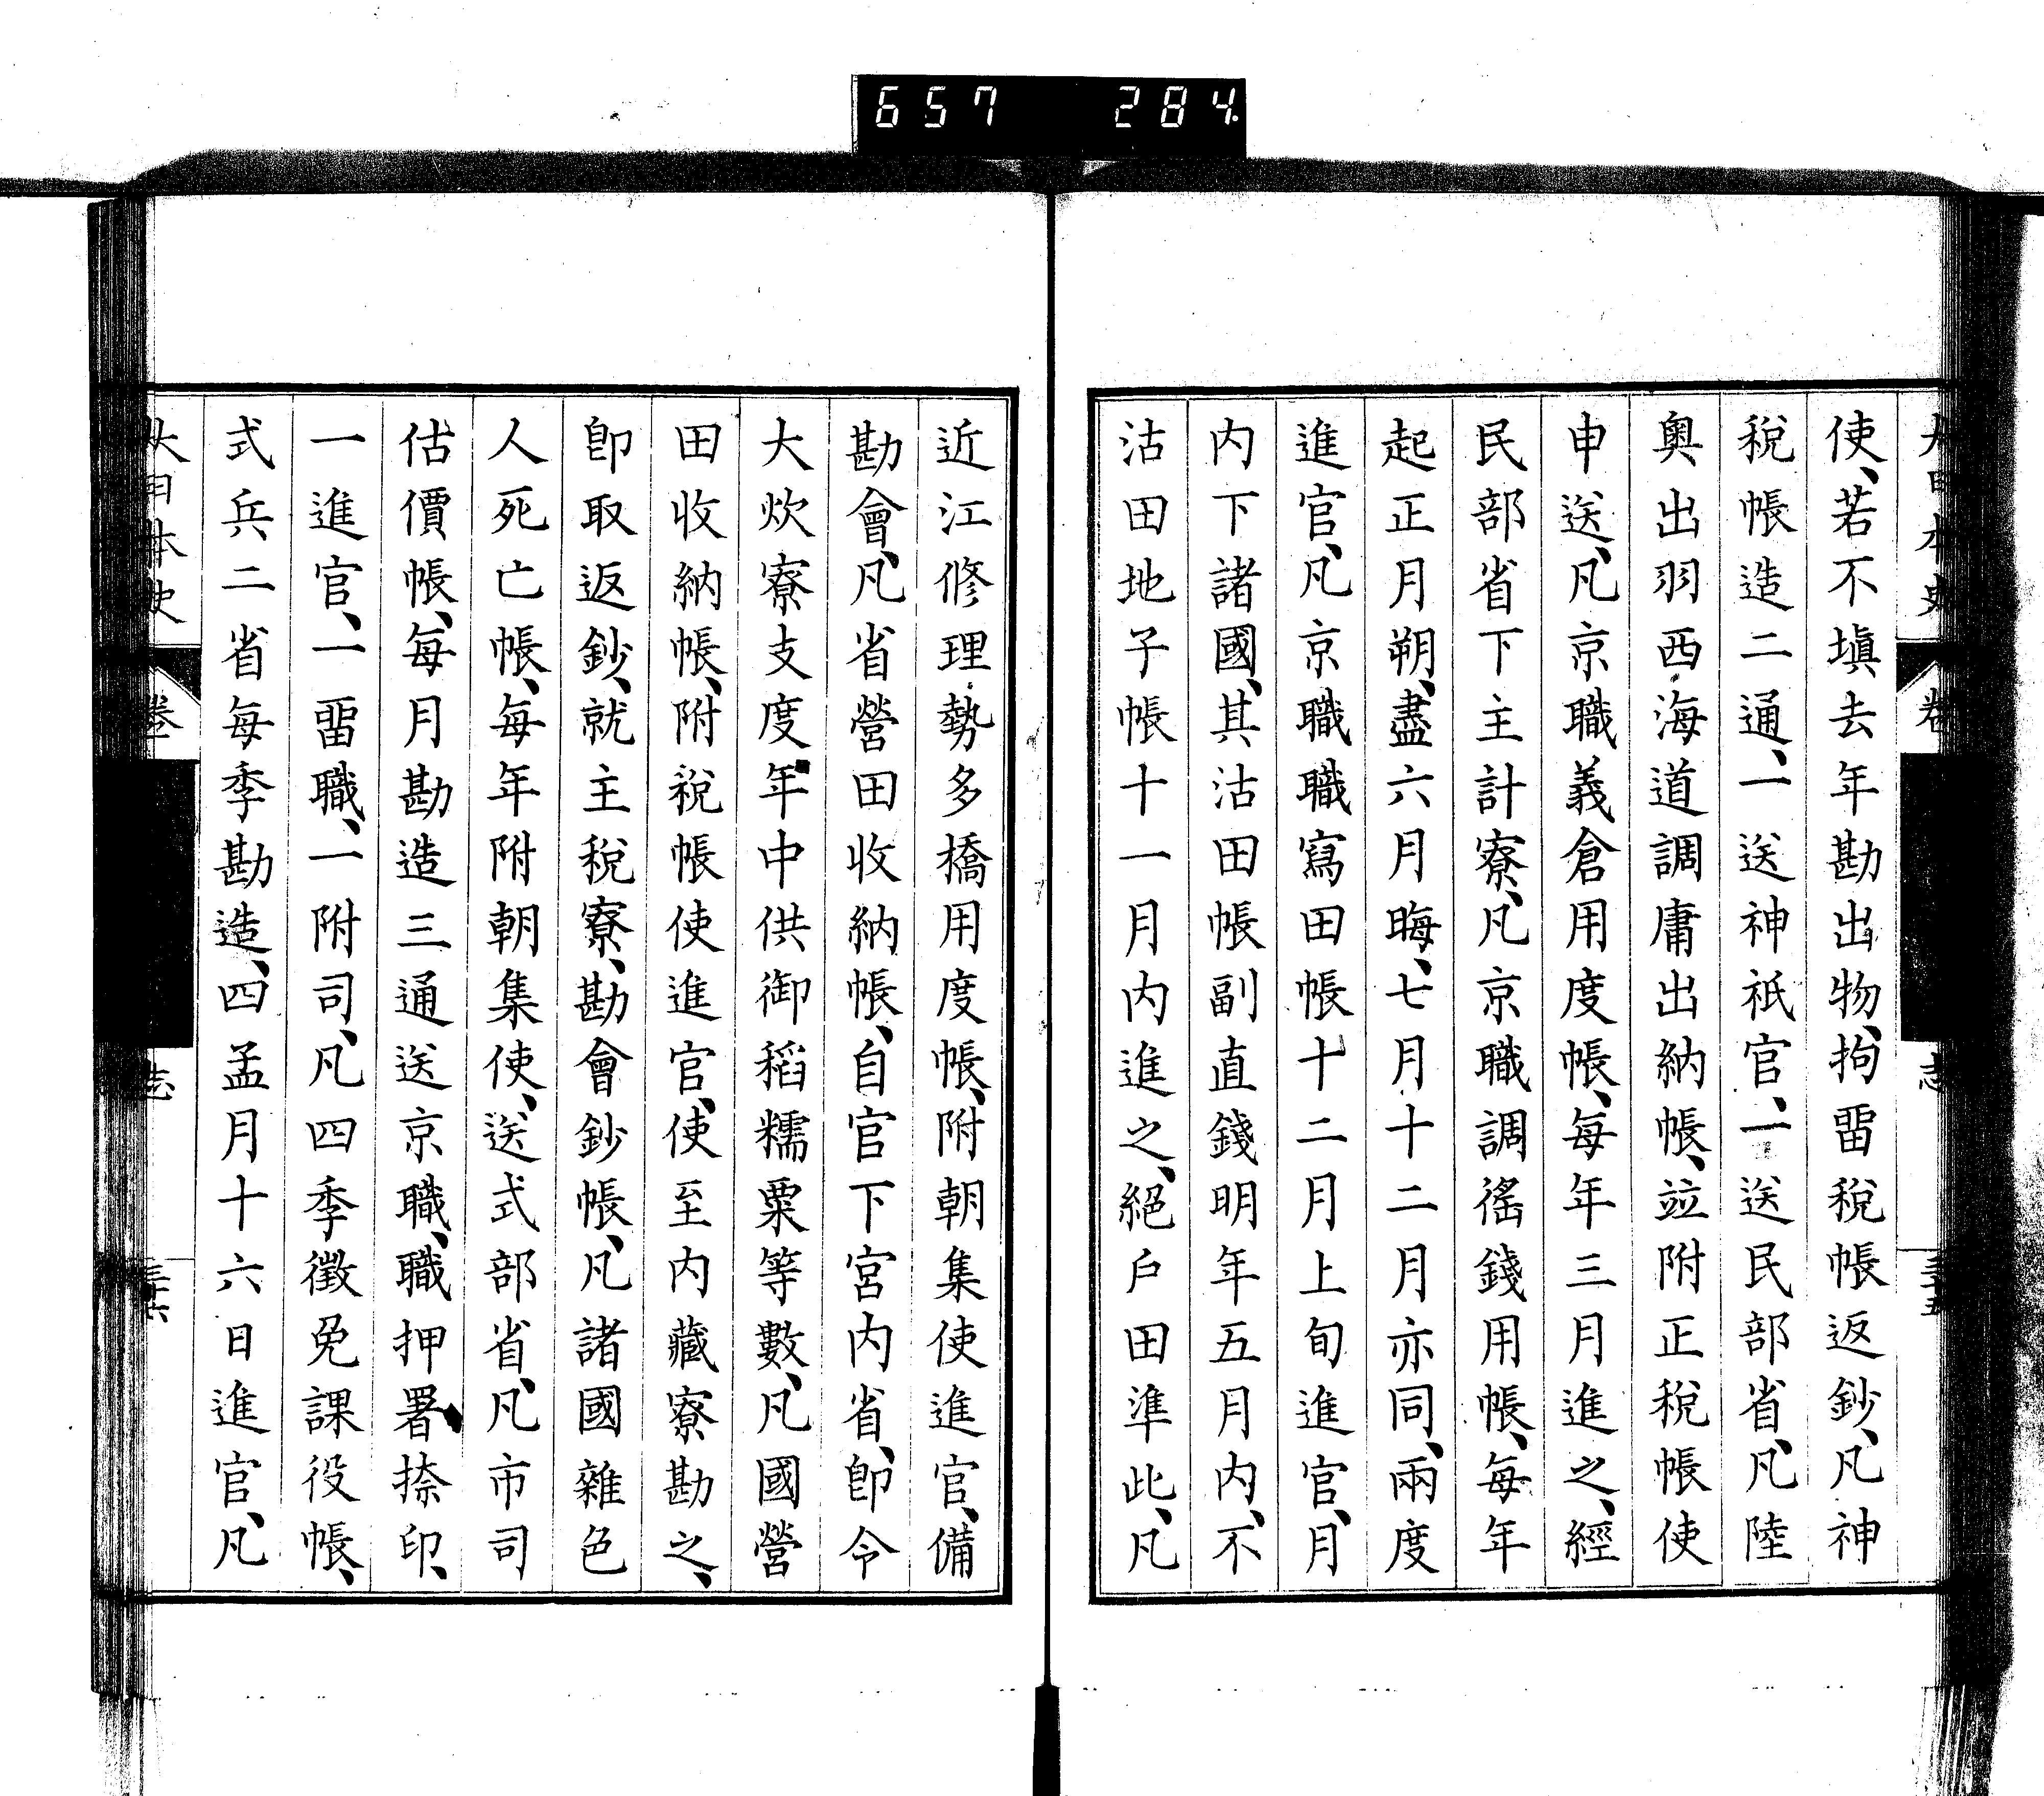 657 284
大日本史 卷 志 三十五
使、若不塡去年勘出物、拘畱稅帳返鈔、凡神
稅帳造二通、一送神祇官、一送民部省、凡陸
奥出羽西海道調庸出納帳、竝附正稅帳使
申送、凡京職義倉用度帳、每年三月進之、經
民部省下主計寮、凡京職調徭錢用帳、每年
起正月朔、盡六月晦、七月十二月亦同、兩度
進官、凡京職職寫田帳十二月上旬進官、月
内下諸國、其沽田帳副直錢明年五月内、不
沽田地子帳十一月内進之、絕戶田準此、凡
近江修理勢多橋用度帳、附朝集使進官、備
勘會、凡省營田收納帳、自官下宮内省、卽令
大炊寮支度年中供御稻糯粟等數、凡國營
田收納帳、附稅帳使進官、使至内藏寮勘之、
卽取返鈔、就主稅寮、勘會鈔帳、凡諸國雜色
人死亡帳、每年附朝集使、送式部省、凡市司
估價帳、每月勘造三通送京職、職押署捺印、
一進官、一畱職、一附司、凡四季徵免課役帳、
式兵二省每季勘造、四孟月十六日進官、凡
大日本史 卷 志 三十六